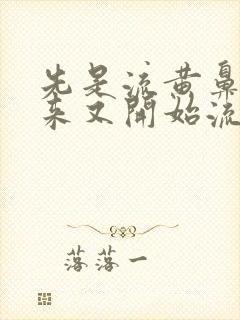 先是流黄鼻
来又開始流
落落一